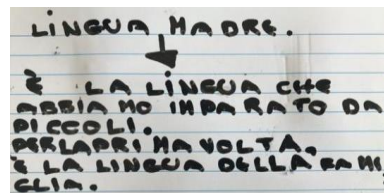 LINGUA MADRE.
È LA LINGUA CHE
ABBIAMO IMPARATO DA
PICCOLI.
PERLAPRIMAVOLTA.
È LA LINGUA DELLA FAMI
GLIA.